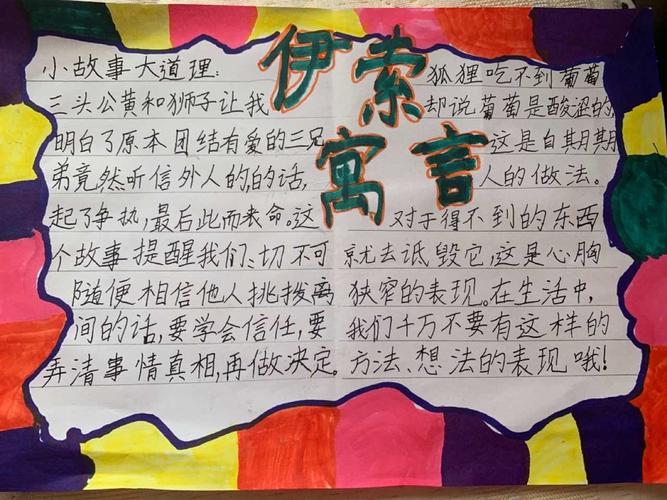 伊索
寓言
小故事大道理:
三头公黄和狮子让我
明白了原本团结有爱的三兄
弟竟然听信外人的,的话,
起了争执,最后此而来命。这
个故事提醒我们、切不可
随便相信他人挑拨离
间的话,要学会信任,要
弄清事情真相,再做决定。
狐狸吃不到葡萄
却说葡萄是酸涩的,
这是自欺欺
人的做法。
对于得不到的东西
就去诋毁它,这是心胸
狭窄的表现。在生活中,
我们千万不要有这样的
方法、想法的表现哦!